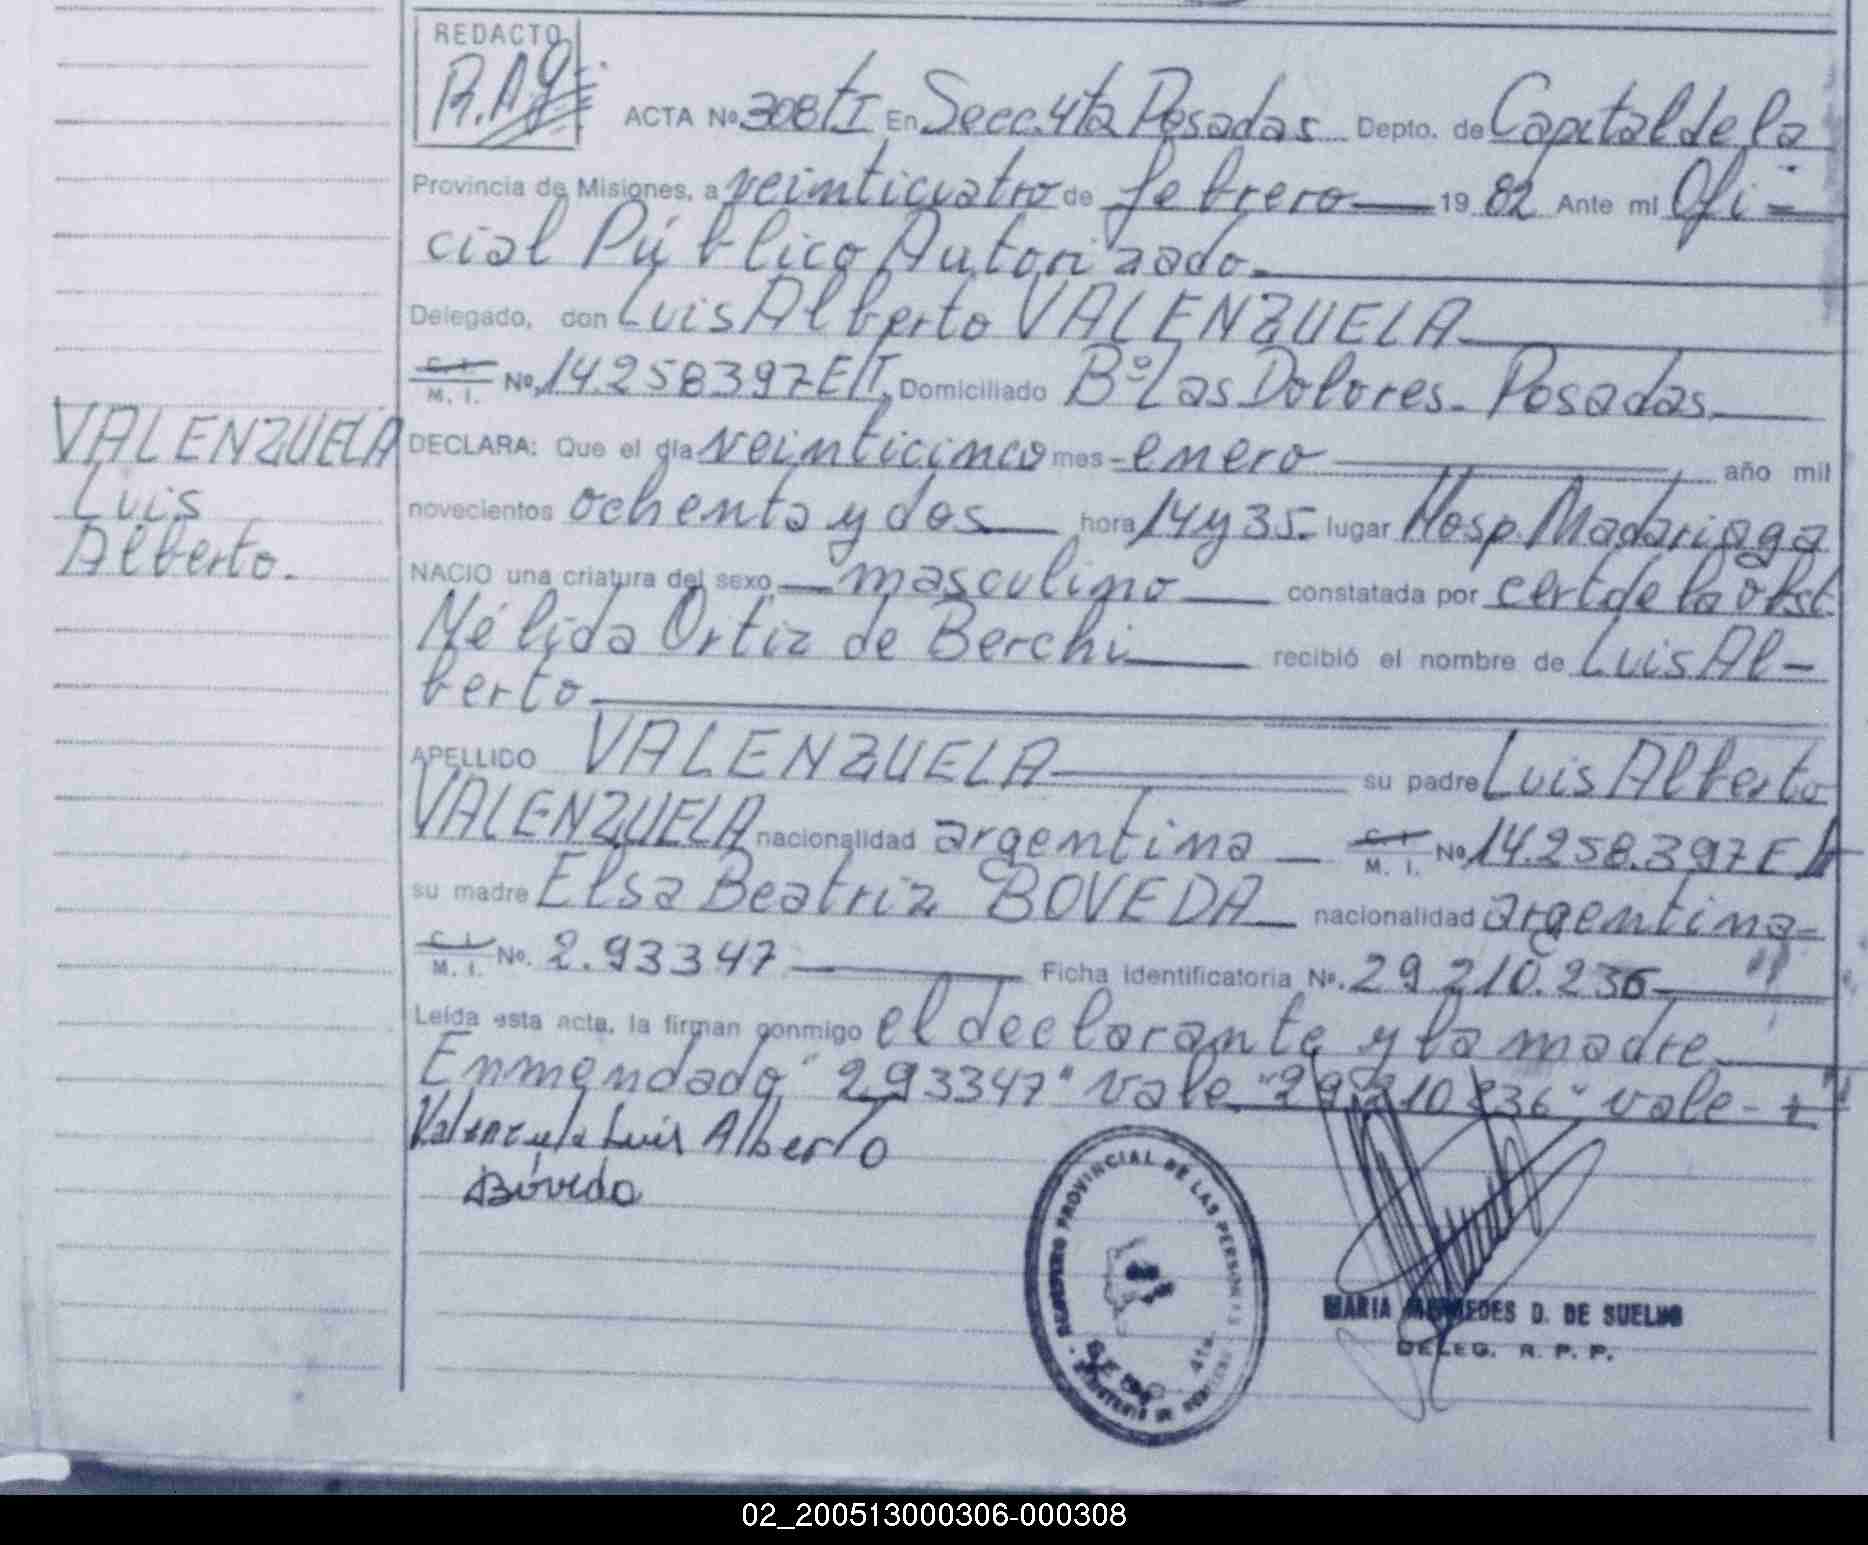 REDACTO
R.A.G
ACTA Nº 308 TI En Secc. 4ta Posadas Depto. de Capital de la
Provincia de Misiones, a veinticuatro de febrero 19 82 Ante mi Ofi-
cial Público Autorizado.
Delegado, don Luis Alberto VALENZUELA
C. I. M. I. No. 14.258397 EIT. Domiciliado Bº Las Dolores - Posadas
VALENZUELA
Luis
Alberto.
DECLARA: Que el día veinticinco mes - enero año mil
novecientos ochenta y dos hora 14 y 35. lugar Hosp. Madariaga
NACIO una criatura del sexo masculino constatada por cert de la obst.
Nélida Ortiz de Berchi recibió el nombre de Luis Al-
berto
APELLIDO VALENZUELA su padre Luis Alberto
VALENZUELA nacionalidad argentina C. I. M. I. Nº 14.258.397 E
su madre Elsa Beatriz BOVEDA nacionalidad argentina-
C. I. M. I. No. 2.93347 Ficha Identificatoria Nº. 29.210.236
Leída esta acta, la firman conmigo el declarante y la madre
Enmendado "293347" vale "29210236" vale-
Valenzuela Luis Alberto
Bóveda
REGISTRO PROVINCIAL DE LAS PERSONAS
SECC. 4ta.
MARIA MERCEDES D. DE SUELDO
DELEG. R. P. P.
02_200513000306-000308